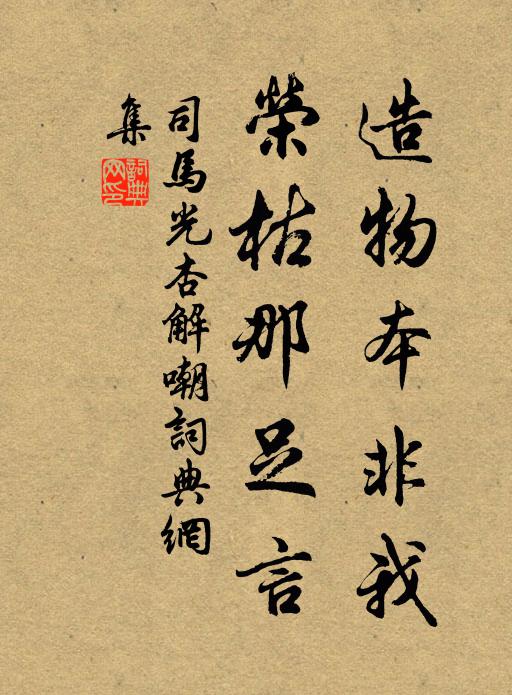 造物本非我
榮枯那足言
司馬光杏解嘲詞典網
集
詞典
网印